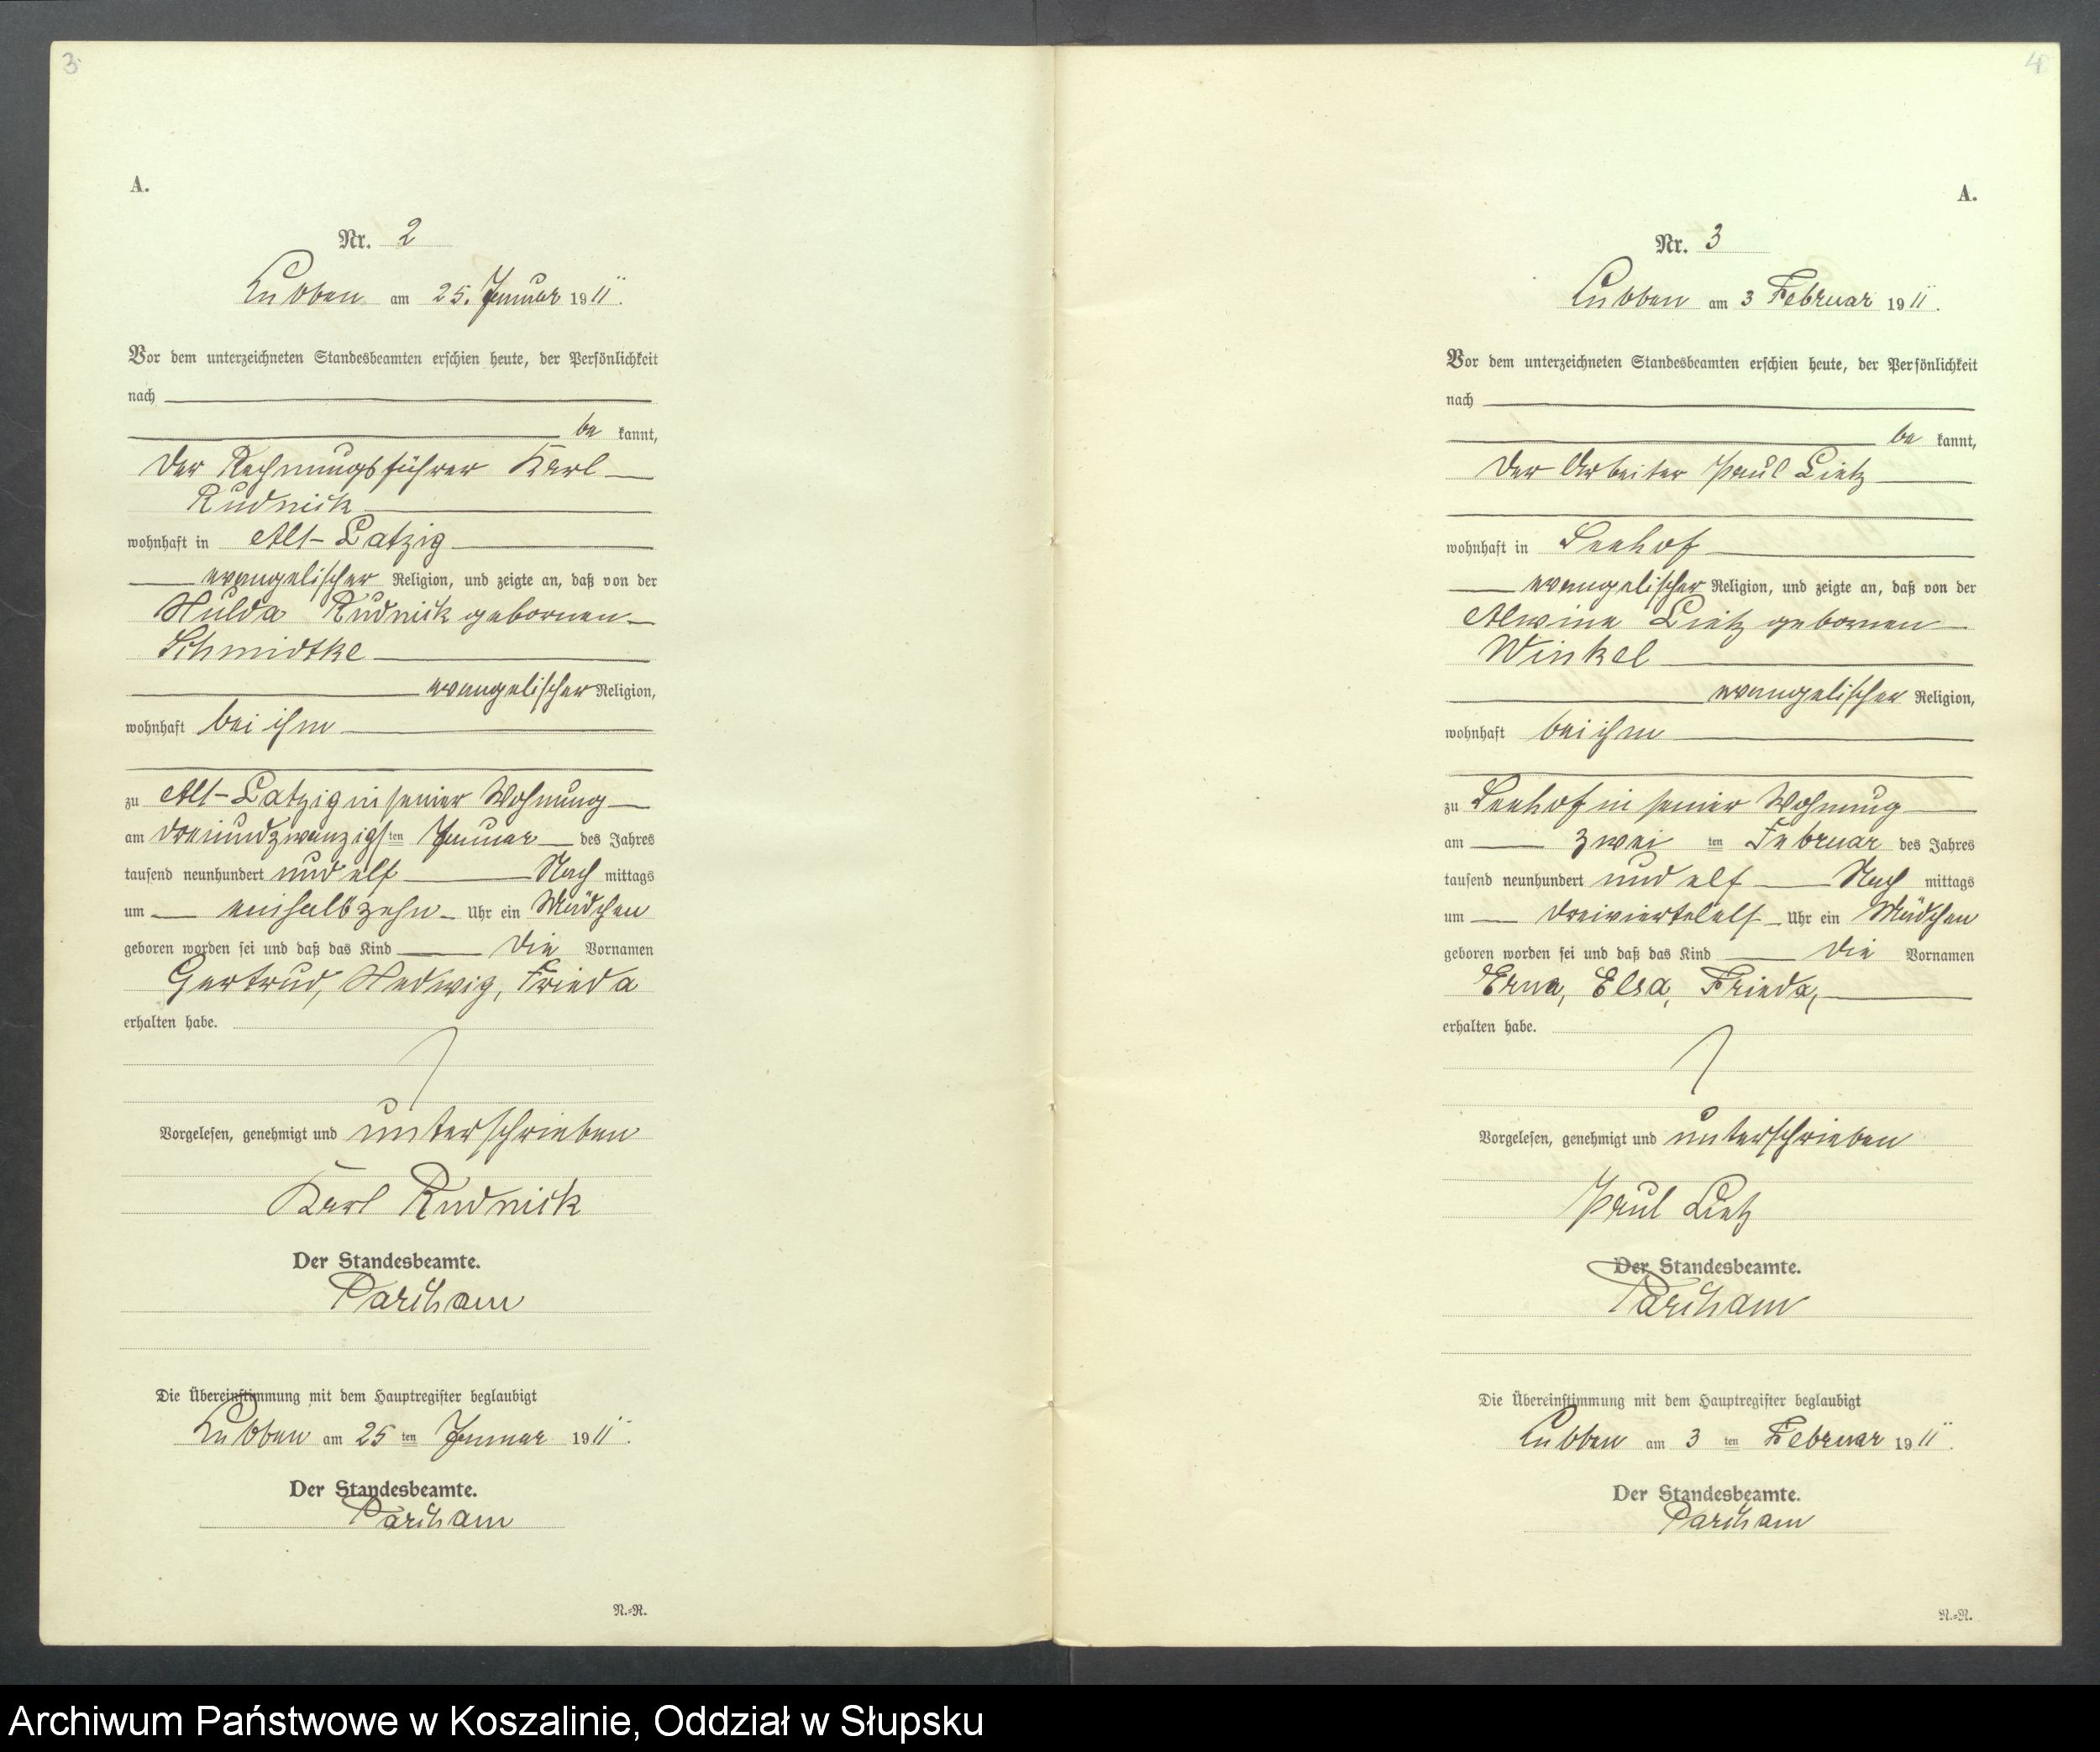 3
A.
Nr. 2
Lubben am 25. Januar 1911.
Vor dem unterzeichneten Standesbeamten erschien heute, der Persönlichkeit
nach
be kannt,
der Rechnungsführer Karl
Rudnick
wohnhaft in Alt-Latzig
evangelischer Religion, und zeigte an, daß von der
Hulda Rudnick gebornen
Schmidtke
evangelischer Religion,
wohnhaft bei ihm
zu Alt-Latzig in seiner Wohnung
am dreiundzwanzigsten Januar des Jahres
tausend neunhundert und elf Nach mittags
um einhalbzehn Uhr ein Mädchen
geboren worden sei und daß das Kind die Vornamen
Gertrud, Hedwig, Frieda
erhalten habe.
Vorgelesen, genehmigt und unterschrieben
Karl Rudnick
Der Standesbeamte.
Parcham
Die Übereinstimmung mit dem Hauptregister beglaubigt
Lubben am 25 ten Januar 1911.
Der Standesbeamte.
Parcham
N.=R.
4
A.
Nr. 3
Lubben am 3 Februar 1911.
Vor dem unterzeichneten Standesbeamten erschien heute, der Persönlichkeit
nach
be kannt,
der Arbeiter Paul Lietz
wohnhaft in Seehof
evangelischer Religion, und zeigte an, daß von der
Alwine Lietz gebornen
Winkel
evangelischer Religion,
wohnhaft bei ihm
zu Seehof in seiner Wohnung
am zwei ten Februar des Jahres
tausend neunhundert und elf Nach mittags
um dreiviertelelf Uhr ein Mädchen
geboren worden sei und daß das Kind die Vornamen
Erna, Elsa, Frieda,
erhalten habe.
Vorgelesen, genehmigt und unterschrieben
Paul Lietz
Der Standesbeamte.
Parcham
Die Übereinstimmung mit dem Hauptregister beglaubigt
Lubben am 3 ten Februar 1911.
Der Standesbeamte.
Parcham
N.=R.
Archiwum Państwowe w Koszalinie, Oddział w Słupsku